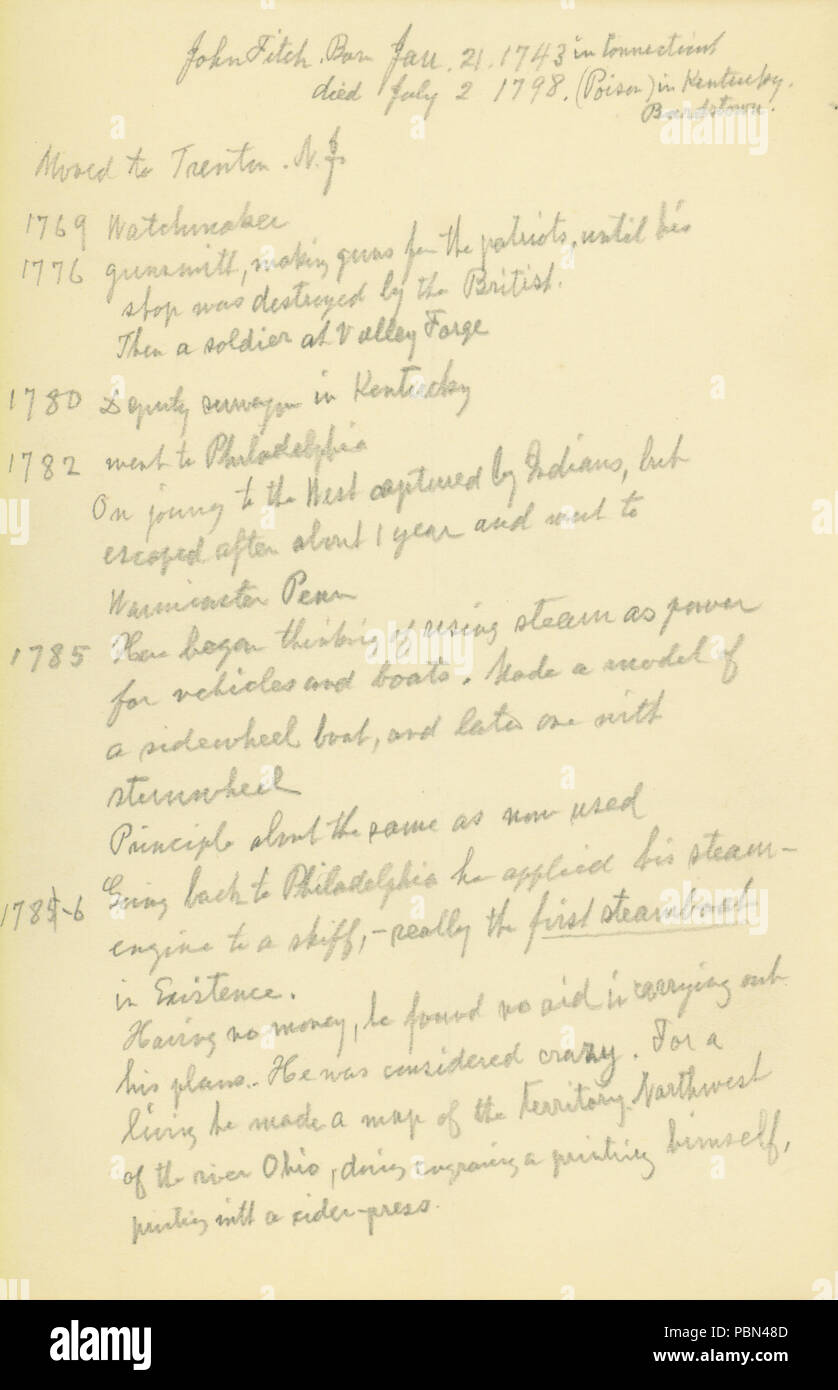 John Fitch. Born Jan. 21. 1743 in Connecticut
died July 2 1798. (Poison) in Kentucky.
Bardstown.
Moved to Trenton. N.J.
1769 Watchmaker
1776 gunsmith, making guns for the patriots, until his
shop was destroyed by the British.
Then a soldier at Valley Forge
1780 Deputy surveyor in Kentucky
1782 went to Philadelphia
On going to the West captured by Indians, but
escaped after about 1 year and went to
Warminster Penn
1785 Here began thinking of using steam as power
for vehicles and boats. Made a model of
a sidewheel boat, and later one with
sternwheel
Principle about the same as now used
1785-6 Going back to Philadelphia he applied his steam-
engine to a skiff,- really the first steamboat
in Existence.
Having no money, he found no aid in carrying out
his plans. He was considered crazy. For a
living he made a map of the territory Northwest
of the river Ohio, doing engraving a printing himself,
printing with a cider-press.
alamy
Image ID: PBN48D
www.alamy.com